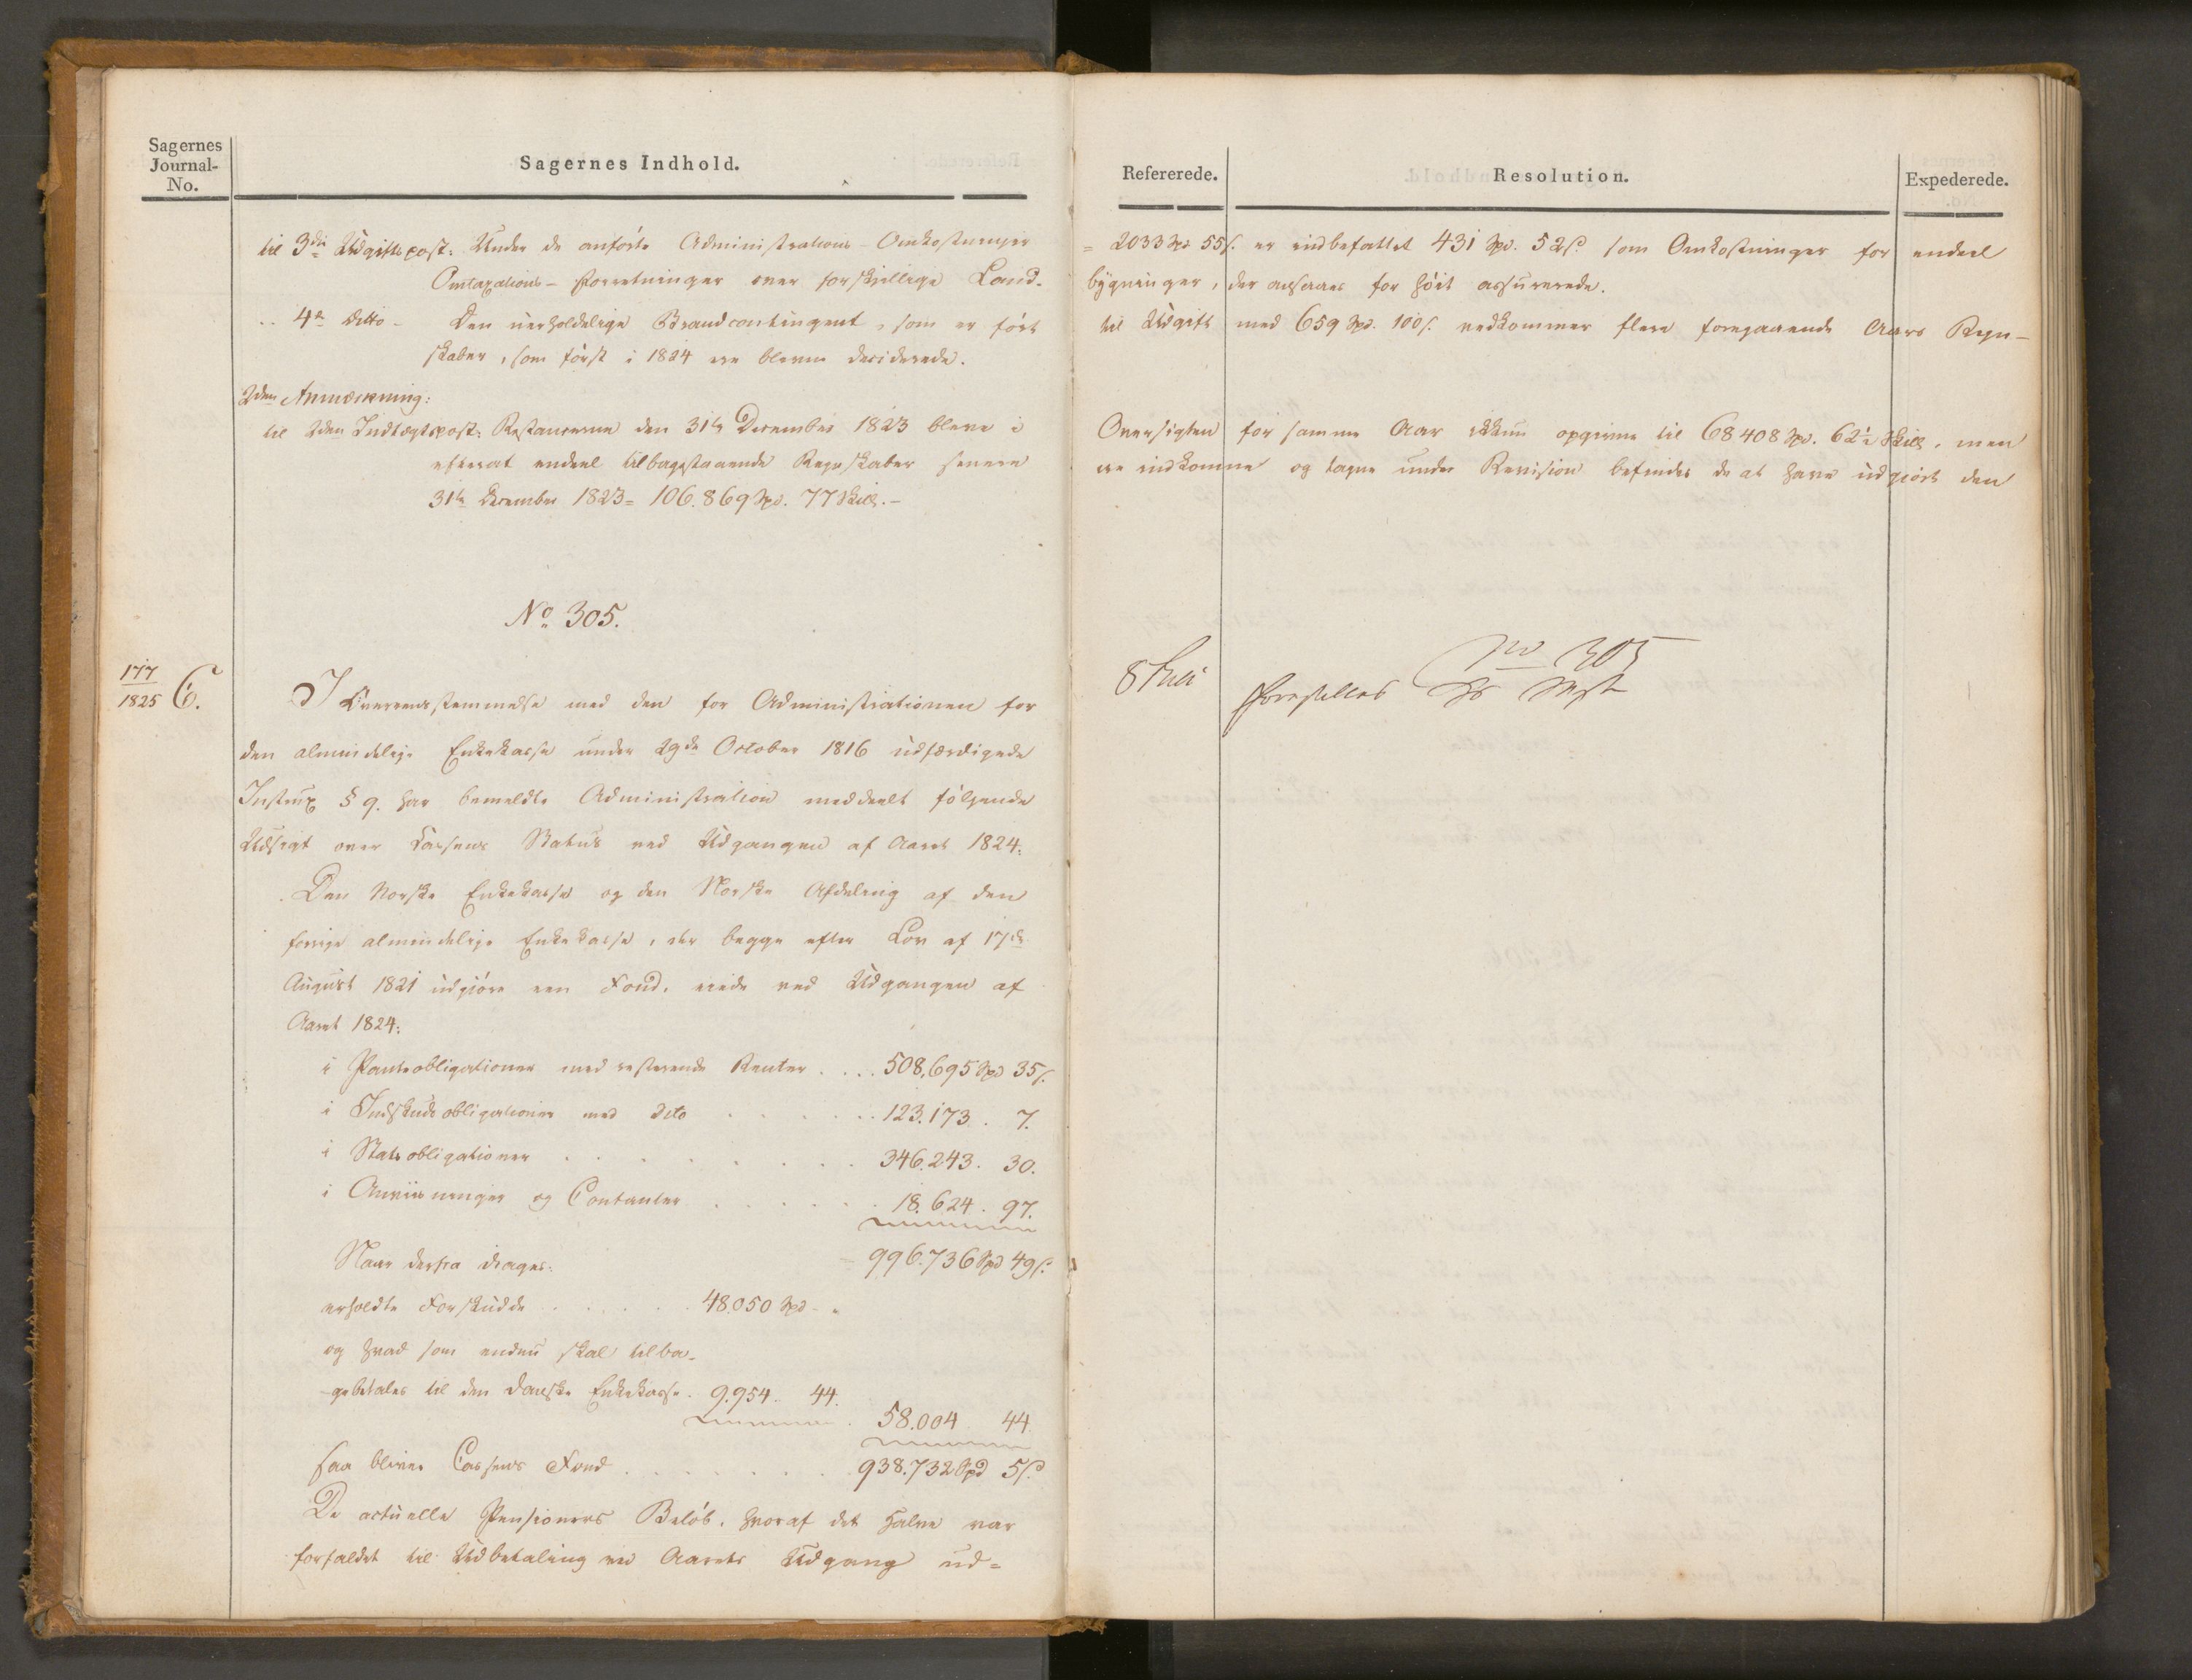 Sagernes
Journal-
No.
Sagernes Indhold.
til 3die Udgiftspost: Under de anførte Administrations-Omkostninger
Omtaxations-Forretninger over forskjellige Land-
" 4de Ditto - Den uerholdelige Brandcontingent, som er ført
skaber, som først i 1824 ere blevne deciderede.
2den Anmærkning:
til 2den Indtægtspost: Restancerne den 31te December 1823 bleve i
efterat endeel tilbagestaaende Regnskaber senere
31te December 1823 = 106.869 Spd. 77 Skill. -
No 305.
177
1825 C.
I Overeensstemmelse med den for Administrationen for
den almindelige Enkekasse under 29de October 1816 udfærdigede
Instrux § 9. har bemeldte Administration meddeelt følgende
Udsigt over Cassens Status ved Udgangen af Aaret 1824:
Den Norske Enkekasse og den Norske Afdeling af den
forrige almindelige Enkekasse, der begge efter Lov af 17de
August 1821 udgjøre een Fond, eiede ved Udgangen af
Aaret 1824:
i Panteobligationer med resterende Renter . . . . 508,695 Spd 35 s.
i Indskudsobligationer med dito . . . . . . 123.173. 7.
i Statsobligationer . . . . . . . . 346.243. 30.
i Anviisninger og Contanter . . . . . 18.624. 97.
996.736 Spd 49 s.
Naar derfra drages:
erholdte Forskudde . . . . . 48.050 Spd - "
og hvad som endnu skal tilba-
-gebetales til den danske Enkekasse. 9.954. 44.
58.004 44
saa bliver Cassens Fond . . . . . . 938.732 Spd 5 s.
De actuelle Pensioners Beløb, hvoraf det halve var
forfaldet til Udbetaling ved Aarets Udgang ud-
Refererede.
Resolution.
Expederede.
= 2033 Spd 55 s. er indbefattet 431 Spd. 52 s. som Omkostninger for endeel
bygninger, der ansaaes for høit assurerede.
til Udgift med 659 Spd. 100 s. vedkommer flere foregaaende Aars Regn-
Oversigten for samme Aar ikkun opgivne til 68408 Spd. 62½ Skill, men
ere indkomne og tagne under Revision befindes de at have udgiort den
8 Juli
No 305
Forestilles Hs Mst